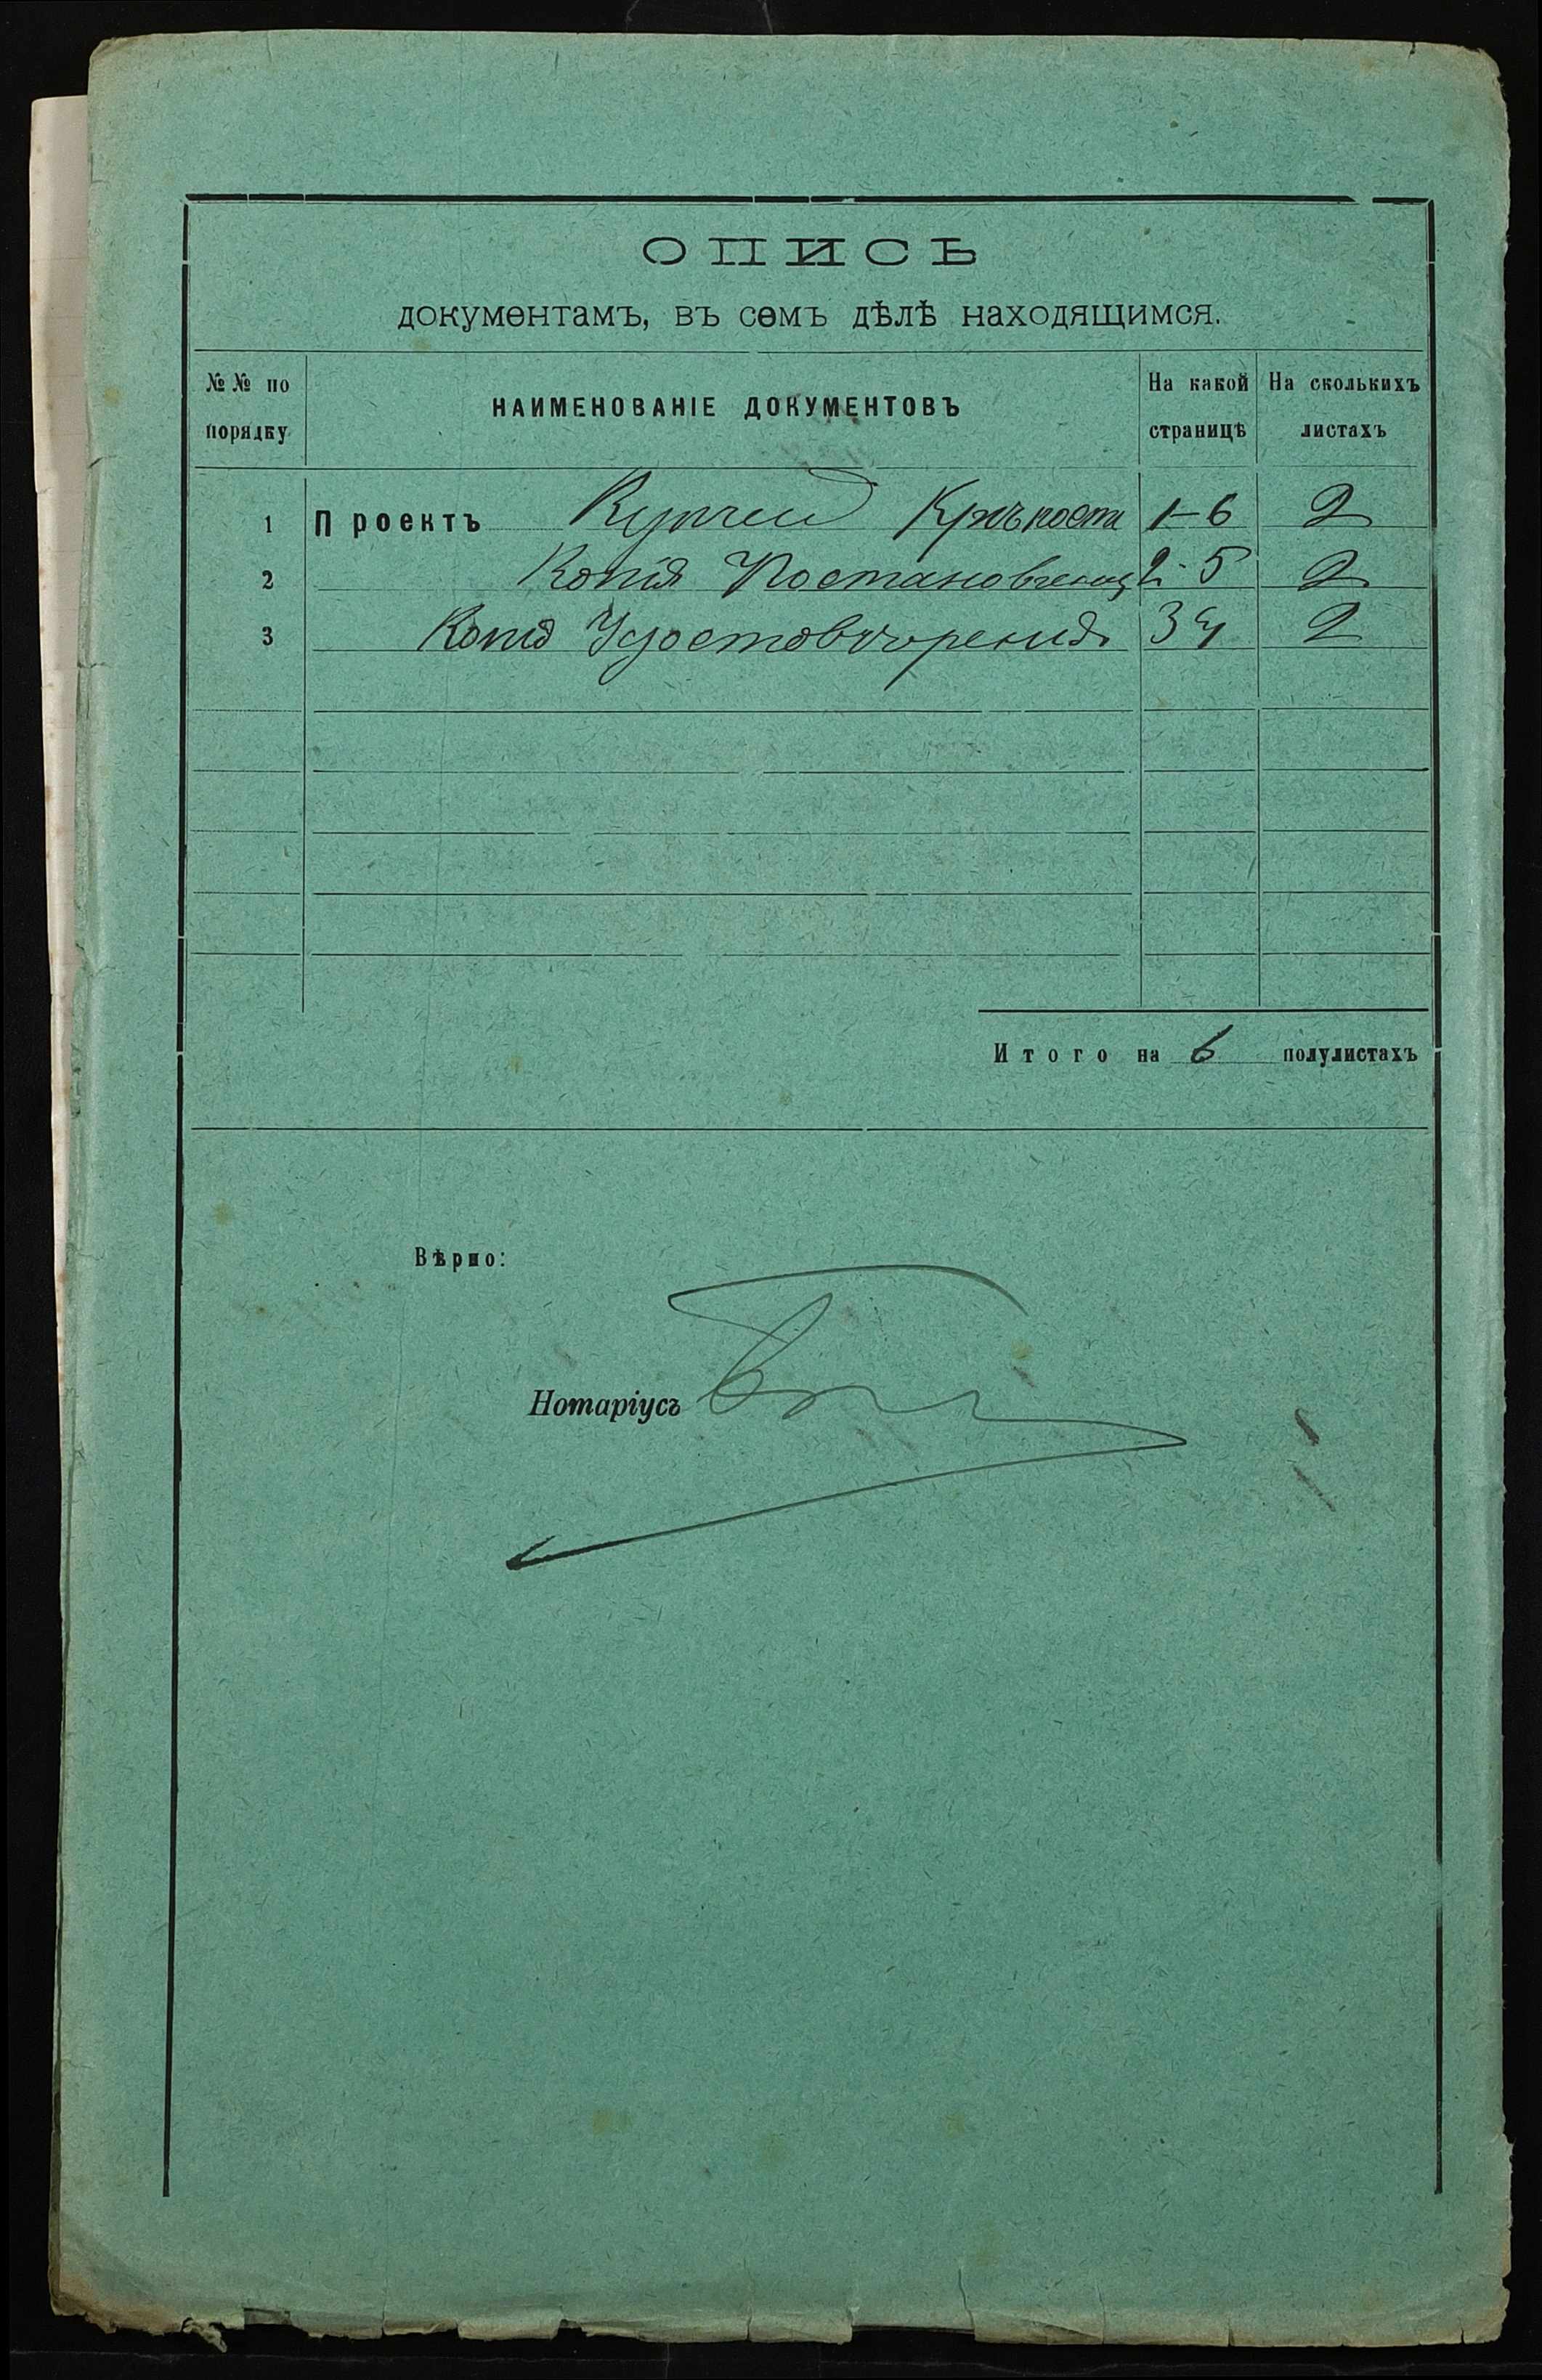 ОПИСЬ
документамъ, въ семъ дѣлѣ находящимся.
№№ по порядку
НАИМЕНОВАНІЕ ДОКУМЕНТОВЪ
На какой страницѣ
На сколькихъ листахъ
1 Проектъ Купчей Крѣпости 1-6 2
2 Копія Постановленія 2-5 2
3 Копія Удостовѣренія 3 4 2
Итого на 6 полулистахъ
Вѣрно:
Нотаріусъ